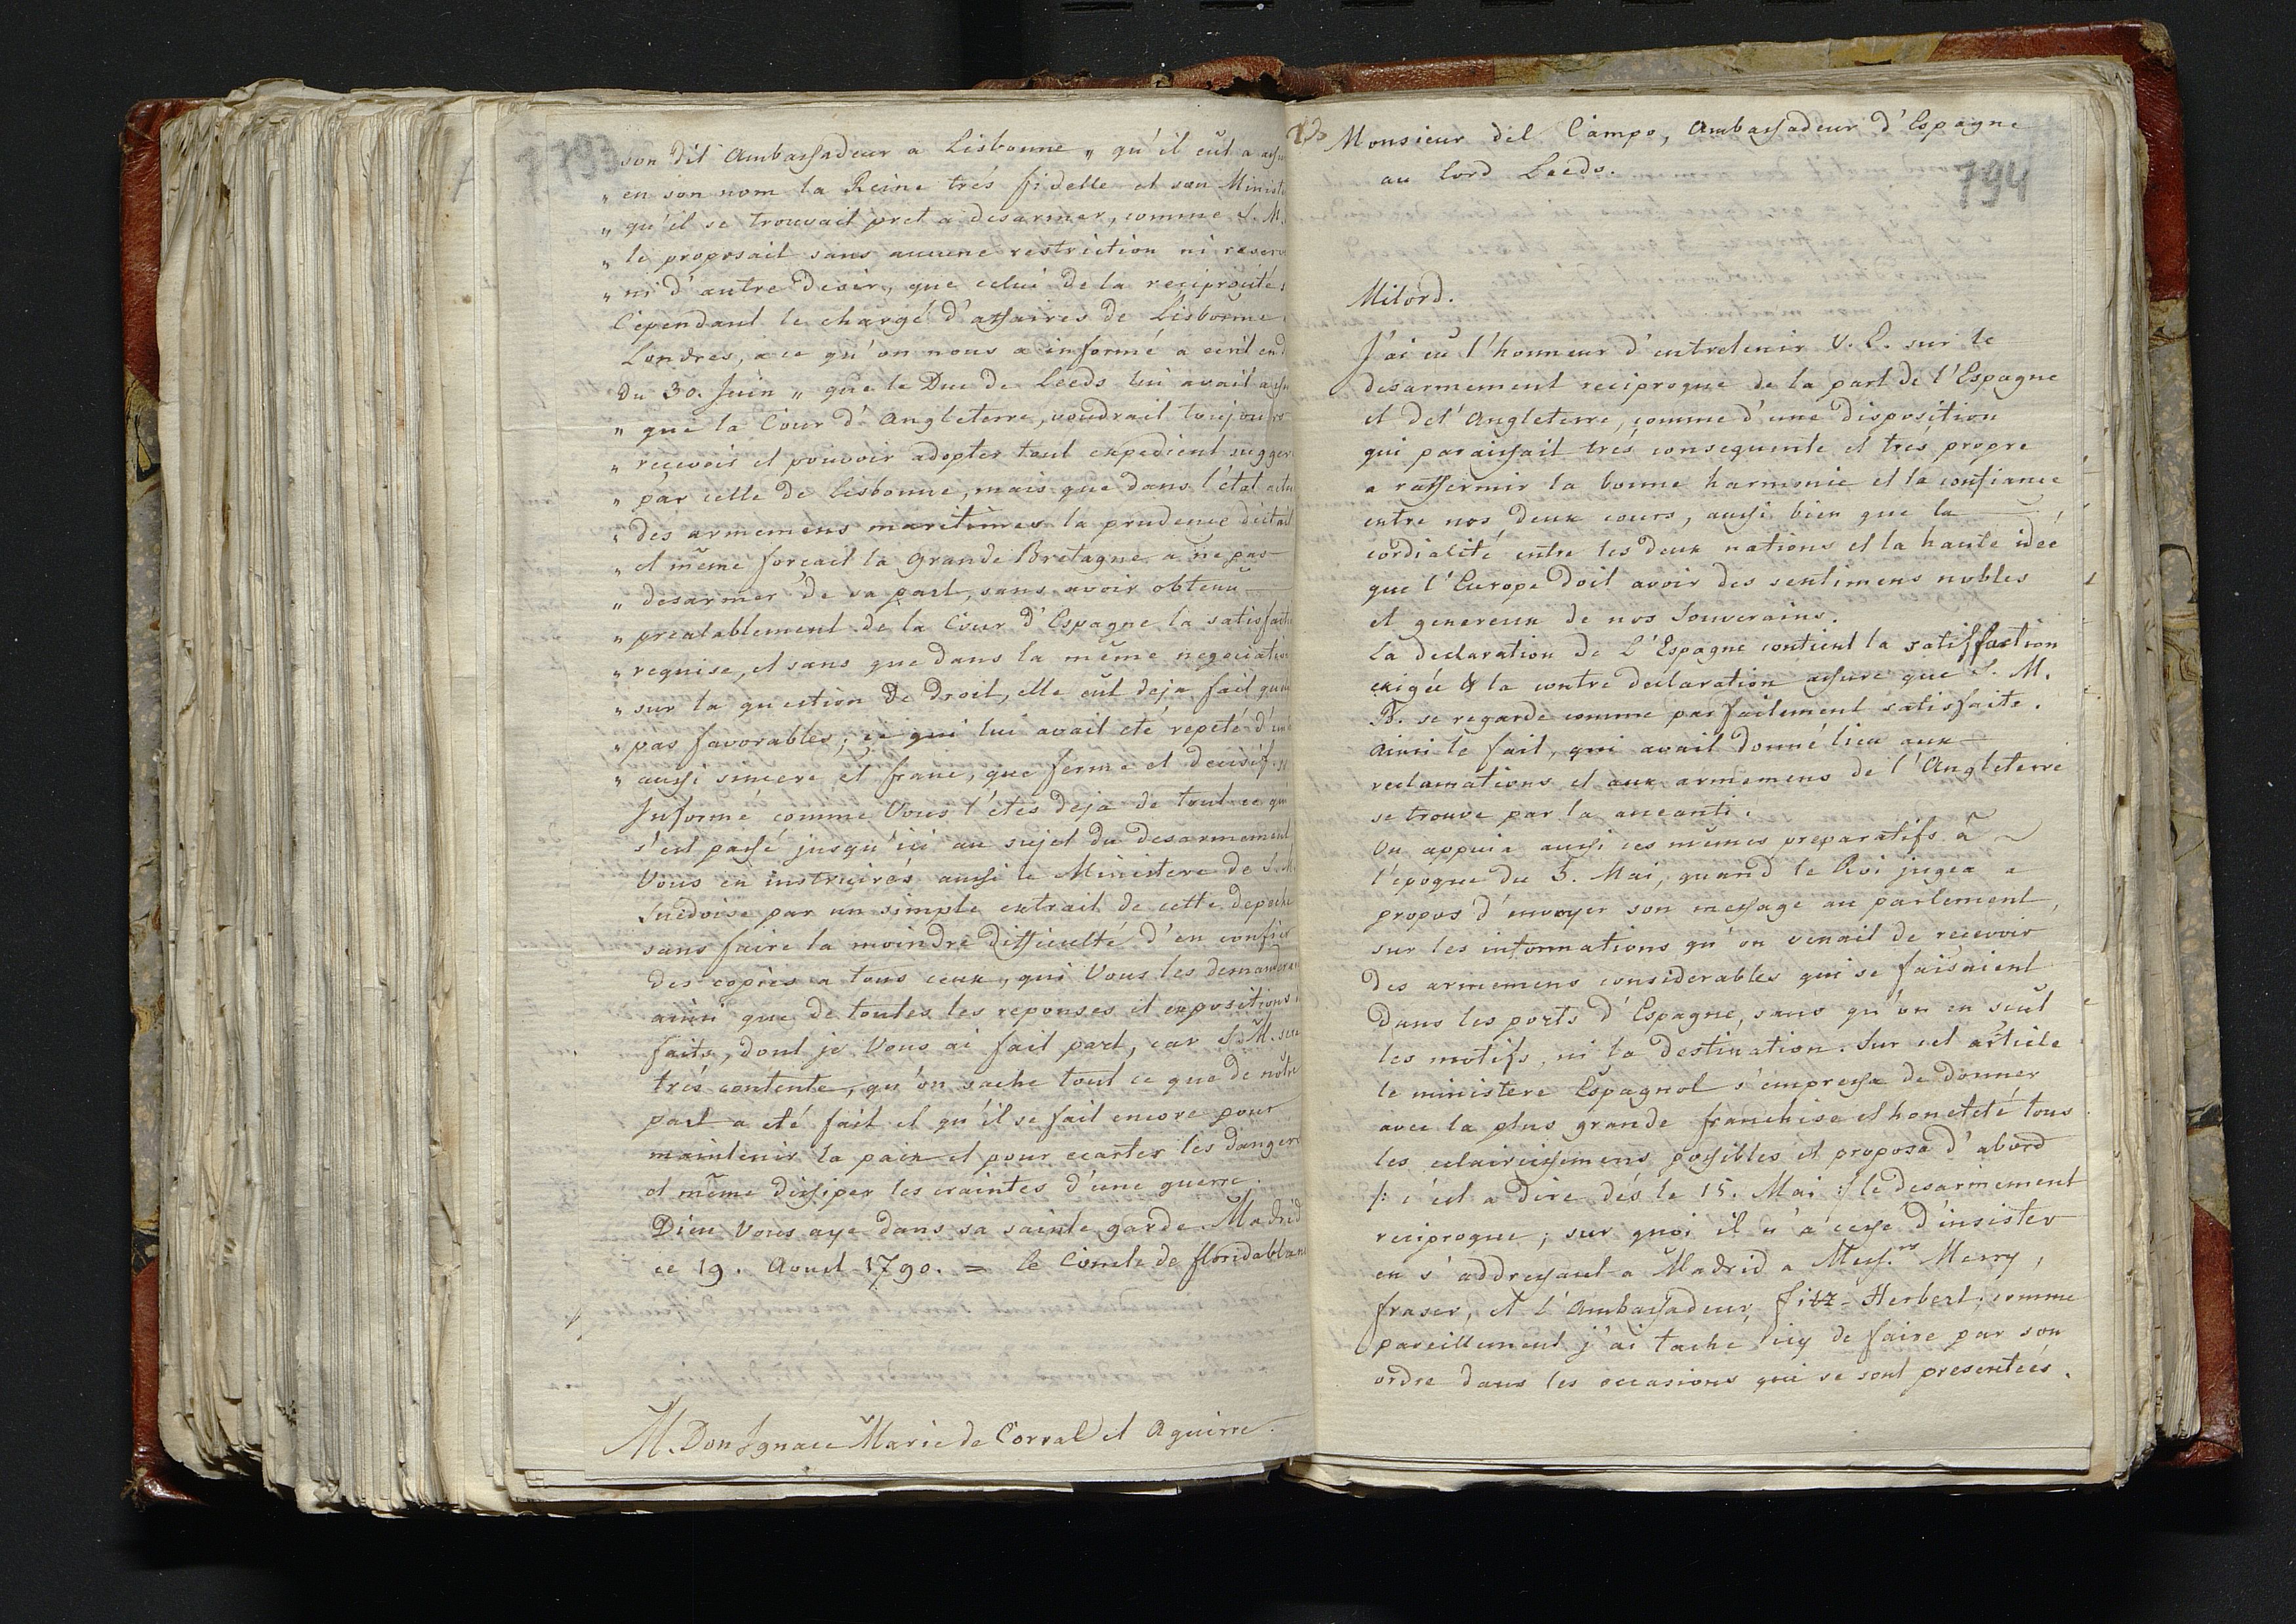 793
son dit Ambassadeur a Lisbonne „ qu'il eût a
„ en son nom la Reine trés fidelle et son
„ qu'il se trouvait pret a desarmer, comme S. M.
„ le proposait sans aucune restriction ni
„ ni d'autre desir, que celui de la reciprocité.
Cependant le chargé d'affaires de Lisbonne
Londres, a ce qu'on nous a informé a ecrit
du 30. Juin „ que le Duc de Leeds lui avait
„ que la Cour d'Angleterre, voudrait toujours
„ recevoir et pouvoir adopter tout expedient
„ par celle de Lisbonne, mais que dans l'état
„ des armemens maritimes la prudence dictait
„ et même forcait la Grande Bretagne a ne pas
„ desarmer de sa part, sans avoir obtenu
„ prealablement de la Cour d'Espagne la
„ requise, et sans que dans la même
„ sur la question de droit, elle eut deja fait
„ pas favorables; ce qui lui avait eté repeté
„ aussi sincere et franc, que ferme et decisif. „
Informé comme Vous l'etes deja de tout ce qui
s'est passé jusqu'ici au sujet du desarmement
Vous en instruirés aussi le Ministere de S. M.
Suedoise par un simple extrait de cette depeche
sans faire la moindre difficulté d'en
des copies a tous ceux, qui Vous les
ainsi que de toutes les reponses et expositions
faits, dont je Vous ai fait part, car S. M.
trés contente, qu'on sache tout ce que de notre
part a eté fait et qu'il se fait encore pour
maintenir la paix et pour ecarter les dangers
et même dissiper les craintes d'une guerre.
Dieu Vous aye dans sa sainte garde. Madrid
ce 19. Aoust 1790. = le Comte de
M. Don Ignace Marie de Corral et Aguirre.
Monsieur del Campo, Ambassadeur d'Espagne
au Lord Leeds.
794
Milord.
J'ai eû l'honneur d'entretenir V. E. sur le
desarmement reciproque de la part de l'Espagne
et de l'Angleterre, comme d'une disposition
qui paraissait trés consequente et tres propre
a raffermir la bonne harmonie et la confiance
entre nos deux cours, aussi bien que la
cordialité entre les deux nations et la haute idee
que l'Europe doit avoir des sentimens nobles
et genereux de nos Souverains.
La declaration de L'Espagne contient la satisfaction
exigée & la contre declaration assure que S. M.
B. se regarde comme parfaitement satisfaite.
Ainsi le fait, qui avait donné lieu aux
reclamations et aux armemens de l'Angleterre
se trouve par la aneanti.
On appuia aussi ces mêmes preparatifs à
l'epoque du 5. Mai, quand le Roi jugea a
propos d'envoyer son message au parlement,
sur les informations qu'on venait de recevoir
des armemens considerables qui se faisaient
dans les ports d'Espagne, sans qu'on en seut
les motifs, ni la destination. Sur cet article
le ministere Espagnol s'empressa de donner
avec la plus grande franchise et honeteté tous
les eclaircissemens possibles et proposa d'abord
/: c'est a dire dés le 15. Mai :/ le desarmement
reciproque; sur quoi il n'a cessé d'insister
en s'addressant a Madrid a Mess.rs Merry,
fraser, et l'Ambassadeur fitz-Herbert, comme
pareillement j'ai taché icy de faire par son
ordre dans les occasions qui se sont presentées.